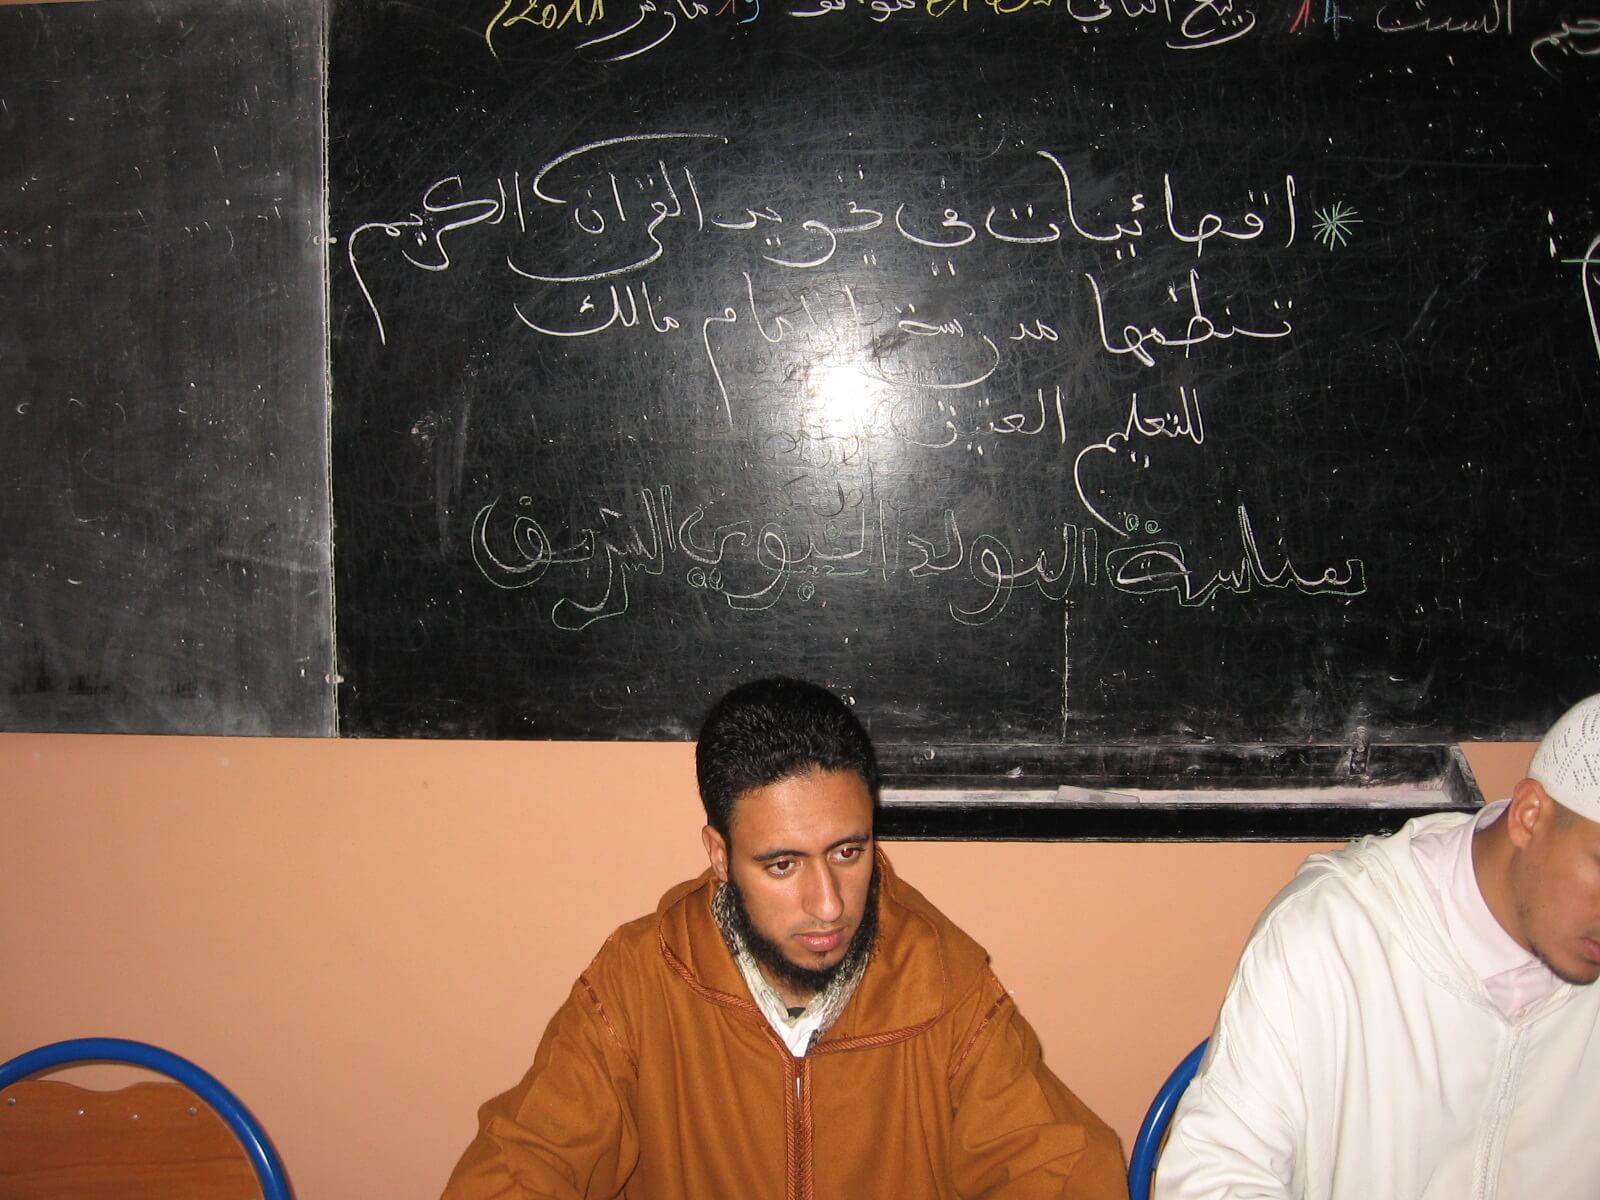 السبت 14 ربيع الثاني 1432 موافق 19 مارس 2011
* اقصائيات في تجويد القرآن الكريم
تنظمها مدرسة الإمام مالك
للتعليم العتيق
بمناسبة المولد النبوي الشريف